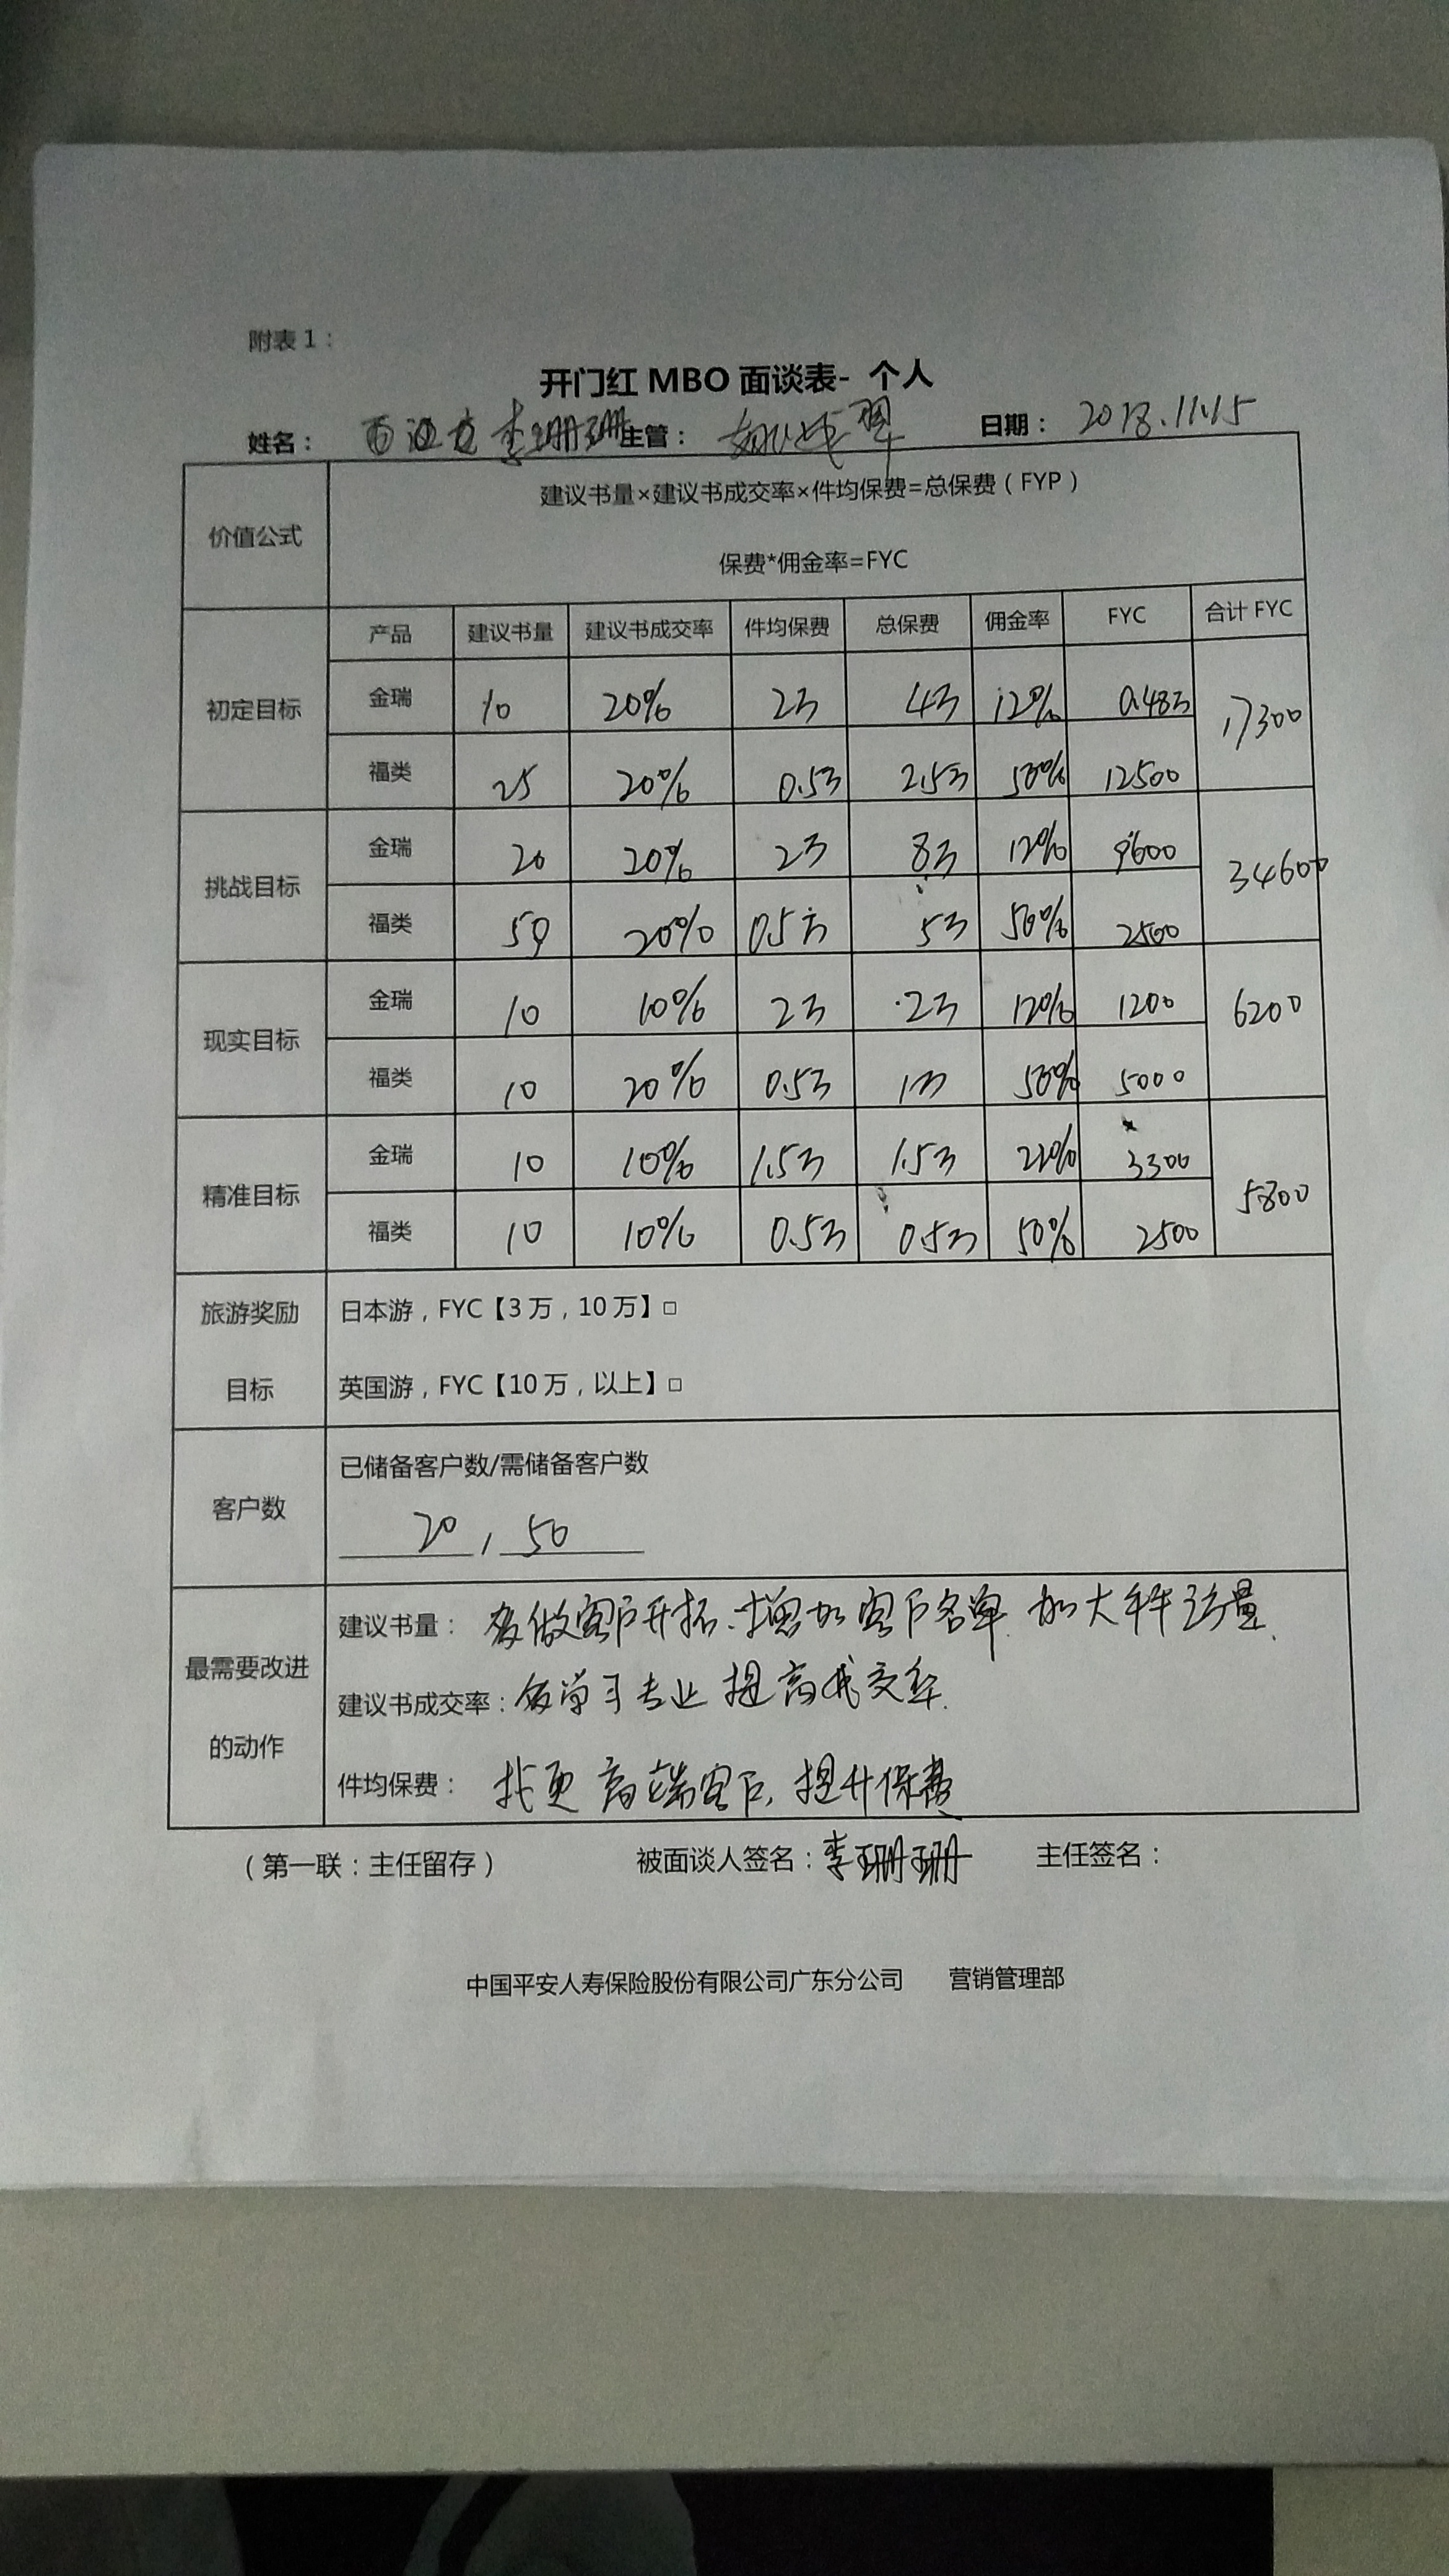 附表1：
开门红 MBO 面谈表- 个人
姓名： 李珊珊 主管： 日期： 2018.11.15
价值公式
建议书量×建议书成交率×件均保费=总保费（FYP）
保费*佣金率=FYC
产品 建议书量 建议书成交率 件均保费 总保费 佣金率 FYC 合计 FYC
初定目标
金瑞 10 20% 2万 4万 12% 0.48万 17300
福类 25 20% 0.5万 2.5万 50% 12500
挑战目标
金瑞 20 20% 2万 8万 12% 9600 34600
福类 50 20% 0.5万 5万 50% 2500
现实目标
金瑞 10 10% 2万 2万 12% 1200 6200
福类 10 20% 0.5万 1万 50% 5000
精准目标
金瑞 10 10% 1.5万 1.5万 22% 3300 5800
福类 10 10% 0.5万 0.5万 50% 2500
旅游奖励
目标
日本游，FYC【3万，10万】□
英国游，FYC【10万，以上】□
客户数
已储备客户数/需储备客户数
20 / 50
最需要改进
的动作
建议书量： 多做客户开拓、增加客户名单 加大拜访量、
建议书成交率： 学习专业 提高成交率.
件均保费： 找更高端客户, 提升保费
（第一联：主任留存） 被面谈人签名：李珊珊 主任签名：
中国平安人寿保险股份有限公司广东分公司 营销管理部